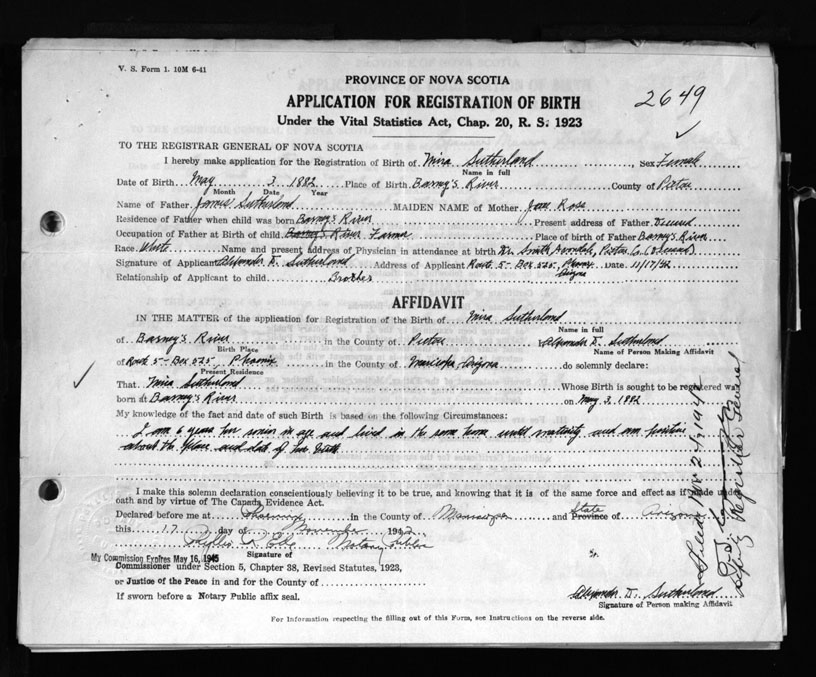 V. S. Form 1. 10M 6-41
PROVINCE OF NOVA SCOTIA
APPLICATION FOR REGISTRATION OF BIRTH
2649
Under the Vital Statistics Act, Chap. 20, R. S. 1923
TO THE REGISTRAR GENERAL OF NOVA SCOTIA
I hereby make application for the Registration of Birth of Mira Sutherland, Sex Female
Name in full
Date of Birth May 3 1882 Place of Birth Barney's River County of Pictou
Month Date Year
Name of Father James Sutherland MAIDEN NAME of Mother Jean Ross
Residence of Father when child was born Barney's River Present address of Father Deceased
Occupation of Father at Birth of child Barney's River Farmer Place of birth of Father Barney's River
Race White Name and present address of Physician in attendance at birth Dr. Smith Avondale, Pictou Co. (Deceased)
Signature of Applicant Alexander D. Sutherland Address of Applicant Route 5- Box 525, Phoenix Date 11/17/42
Arizona
Relationship of Applicant to child Brother
AFFIDAVIT
IN THE MATTER of the application for Registration of the Birth of Mira Sutherland
Name in full
of Barney's River in the County of Pictou I, Alexander D. Sutherland
Birth Place Name of Person Making Affidavit
of Route 5- Box 525- Phoenix in the County of Maricopa-Arizona do solemnly declare:
Present Residence
That Mira Sutherland Whose Birth is sought to be registered was
born at Barney's River on May 3, 1882
My knowledge of the fact and date of such Birth is based on the following Circumstances:
I am 6 years her senior in age and lived in the same home until maturity and am positive
about the place and date of her birth
I make this solemn declaration conscientiously believing it to be true, and knowing that it is of the same force and effect as if made under
oath and by virtue of The Canada Evidence Act.
Declared before me at Phoenix in the County of Maricopa and State Province of Arizona
this 17 day of November 1942
Notary Public
My Commission Expires May 16, 1945 Signature of
Commissioner under Section 5, Chapter 38, Revised Statutes, 1923,
or Justice of the Peace in and for the County of
If sworn before a Notary Public affix seal.
Alexander D. Sutherland
Signature of Person making Affidavit
For Information respecting the filling out of this Form, see Instructions on the reverse side.
Registrar General